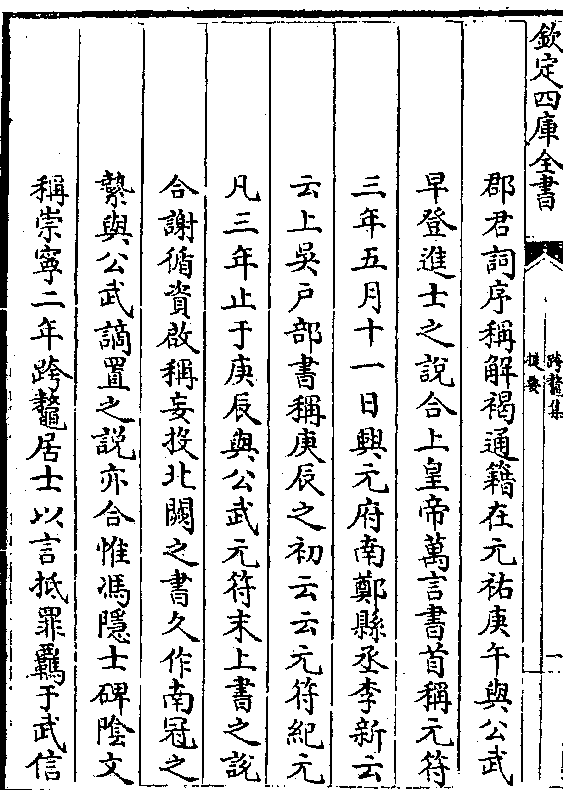 欽定四庫全書
跨鼇集
提要
一
郡君詞序稱解褐通籍在元祐庚午與公武
早登進士之說合上皇帝萬言書首稱元符
三年五月十一日興元府南鄭縣丞李新云
云上吳戶部書稱庚辰之初云云元符紀元
凡三年止于庚辰與公武元符末上書之說
合謝循資啟稱妄投北闕之書久作南冠之
縶與公武謫置之説亦合惟馮隱士碑陰文
稱崇寧二年跨鼇居士以言抵罪羈于武信